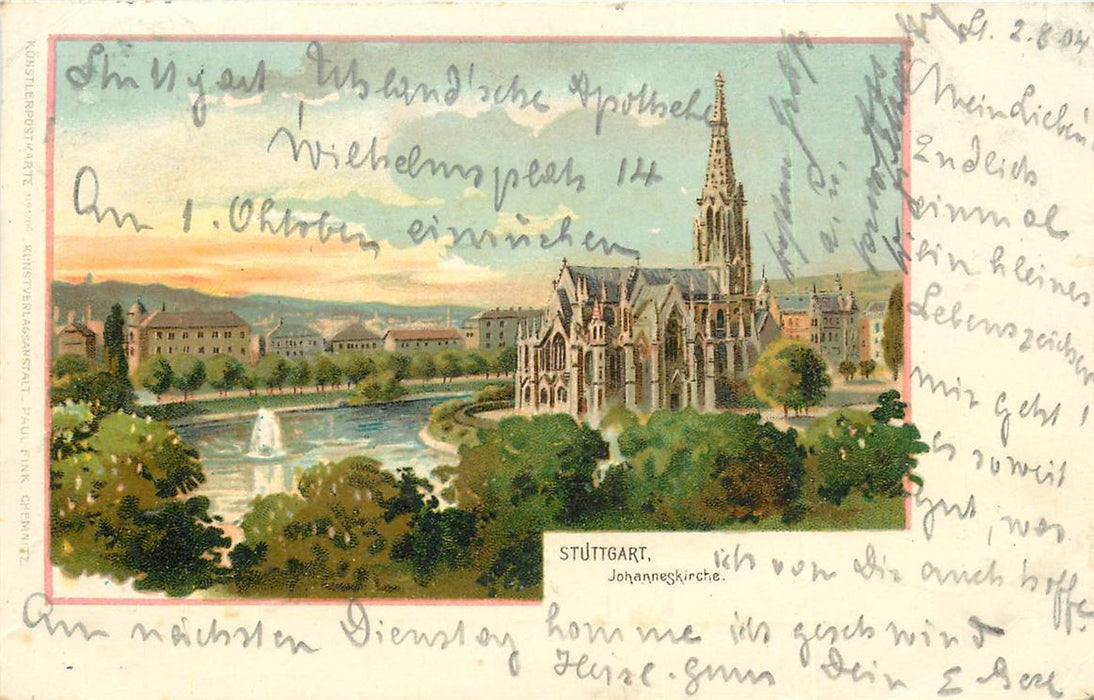 St. 2.8 04
Mein Lieber!
Endlich
einmal
ein kleines
Lebenszeichen
mir geht
es soweit
gut, was
ich von Dir auch hoffe.
Am nächsten Dienstag komme ich geschwind
Herzl. Dein E
Stuttgart Uhland'sche Apotheke
Wilhelmsplatz 14
Am 1. Oktober einrücken
STUTTGART,
Johanneskirche.
KÜNSTLERPOSTKARTE KUNSTVERLAGSANSTALT PAUL FINK CHEMNITZ.